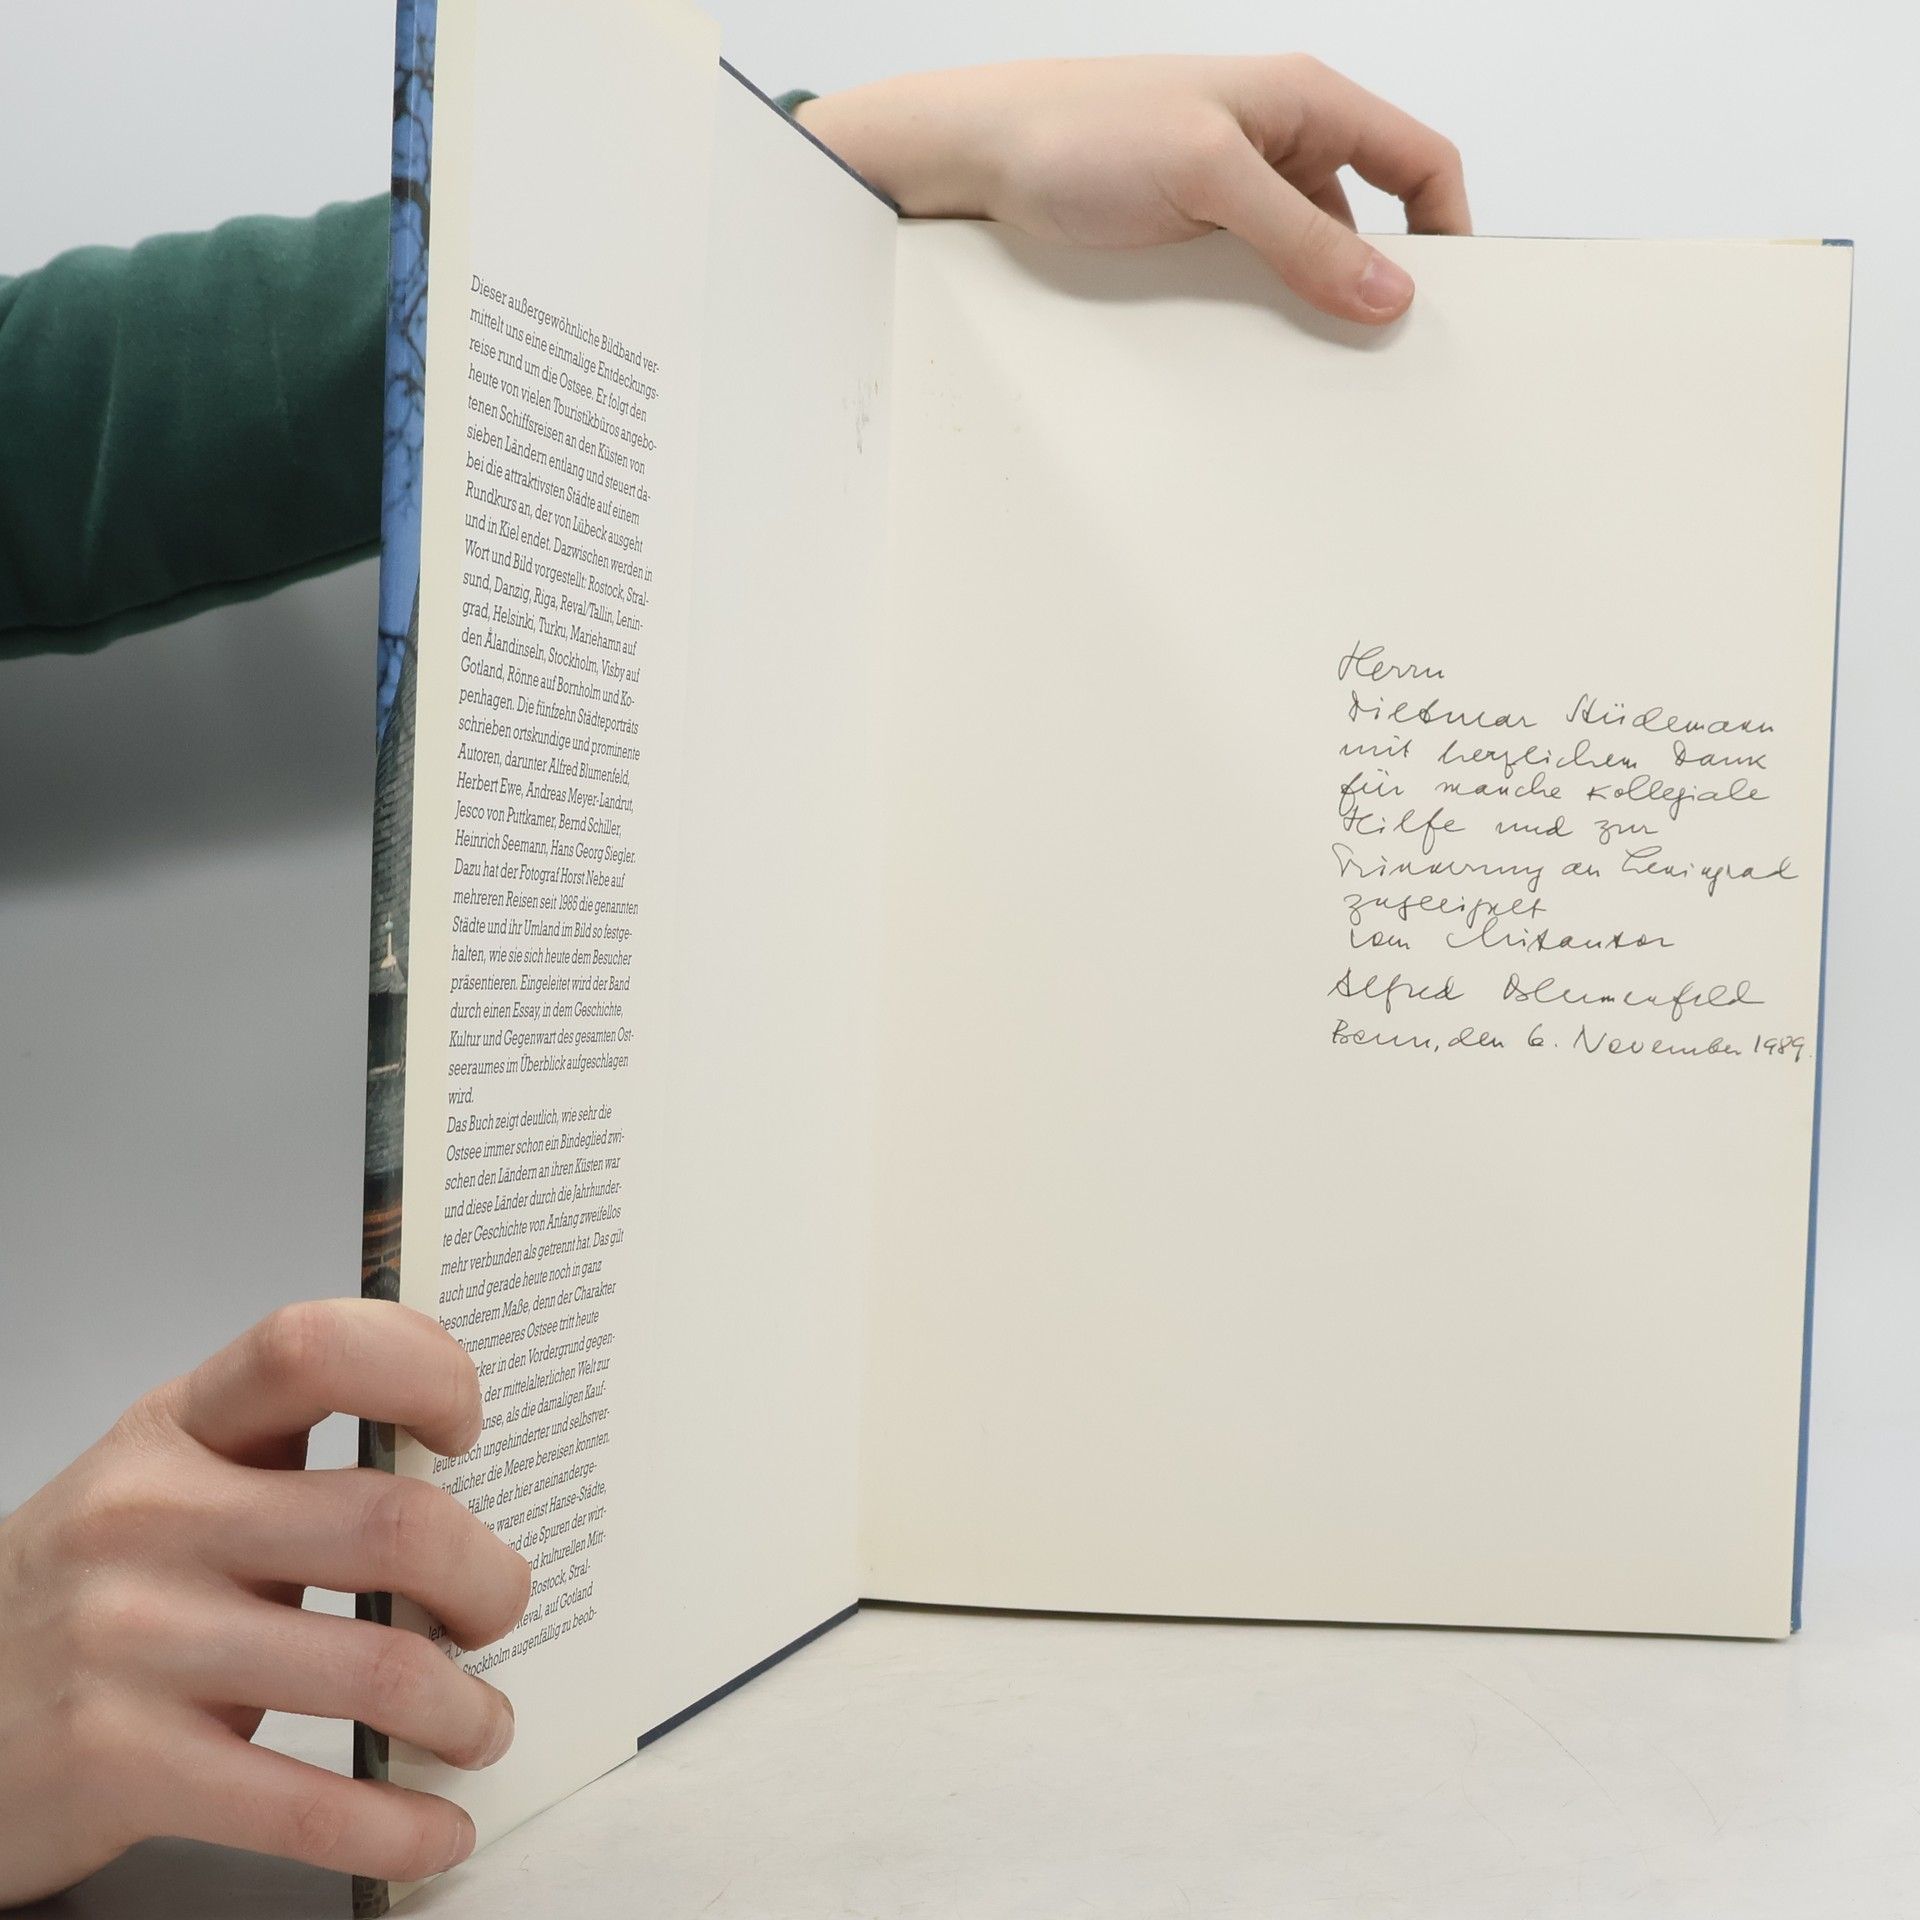 Dieser außergewöhnliche Bildband ver-
mittelt uns eine einmalige Entdeckungs-
reise rund um die Ostsee. Er folgt den
heute von vielen Touristikbüros angebo-
tenen Schiffsreisen an den Küsten von
sieben Ländern entlang und steuert da-
bei die attraktivsten Städte auf einem
Rundkurs an, der von Lübeck ausgeht
und in Kiel endet. Dazwischen werden in
Wort und Bild vorgestellt: Rostock, Stral-
sund, Danzig, Riga, Reval/Tallin, Lenin-
grad, Helsinki, Turku, Mariehamn auf
den Ålandinseln, Stockholm, Visby auf
Gotland, Rönne auf Bornholm und Ko-
penhagen. Die fünfzehn Städteporträts
schrieben ortskundige und prominente
Autoren, darunter Alfred Blumenfeld,
Herbert Ewe, Andreas Meyer-Landrut,
Jesco von Puttkamer, Bernd Schiller,
Heinrich Seemann, Hans Georg Siegler.
Dazu hat der Fotograf Horst Nebe auf
mehreren Reisen seit 1985 die genannten
Städte und ihr Umland im Bild so festge-
halten, wie sie sich heute dem Besucher
präsentieren. Eingeleitet wird der Band
durch einen Essay, in dem Geschichte,
Kultur und Gegenwart des gesamten Ost-
seeraumes im Überblick aufgeschlagen
wird.
Das Buch zeigt deutlich, wie sehr die
Ostsee immer schon ein Bindeglied zwi-
schen den Ländern an ihren Küsten war
und diese Länder durch die Jahrhunder-
te der Geschichte von Anfang zweifellos
mehr verbunden als getrennt hat. Das gilt
auch und gerade heute noch in ganz
besonderem Maße, denn der Charakter
Binnenmeeres Ostsee tritt heute
rker in den Vordergrund gegen-
der mittelalterlichen Welt zur
anse, als die damaligen Kauf-
leute noch ungehinderter und selbstver-
ändlicher die Meere bereisen konnten.
Hälfte der hier aneinanderge-
te waren einst Hanse-Städte,
ind die Spuren der wirt-
nd kulturellen Mitt-
Rostock, Stral-
Reval, auf Gotland
Stockholm augenfällig zu beob-
Herrn
Dietmar Stüdemann
mit herzlichem Dank
für manche kollegiale
Hilfe und zur
Erinnerung an Leningrad
zugeeignet
vom Mitautor
Alfred Blumenfeld
Bonn, den 6. November 1989.